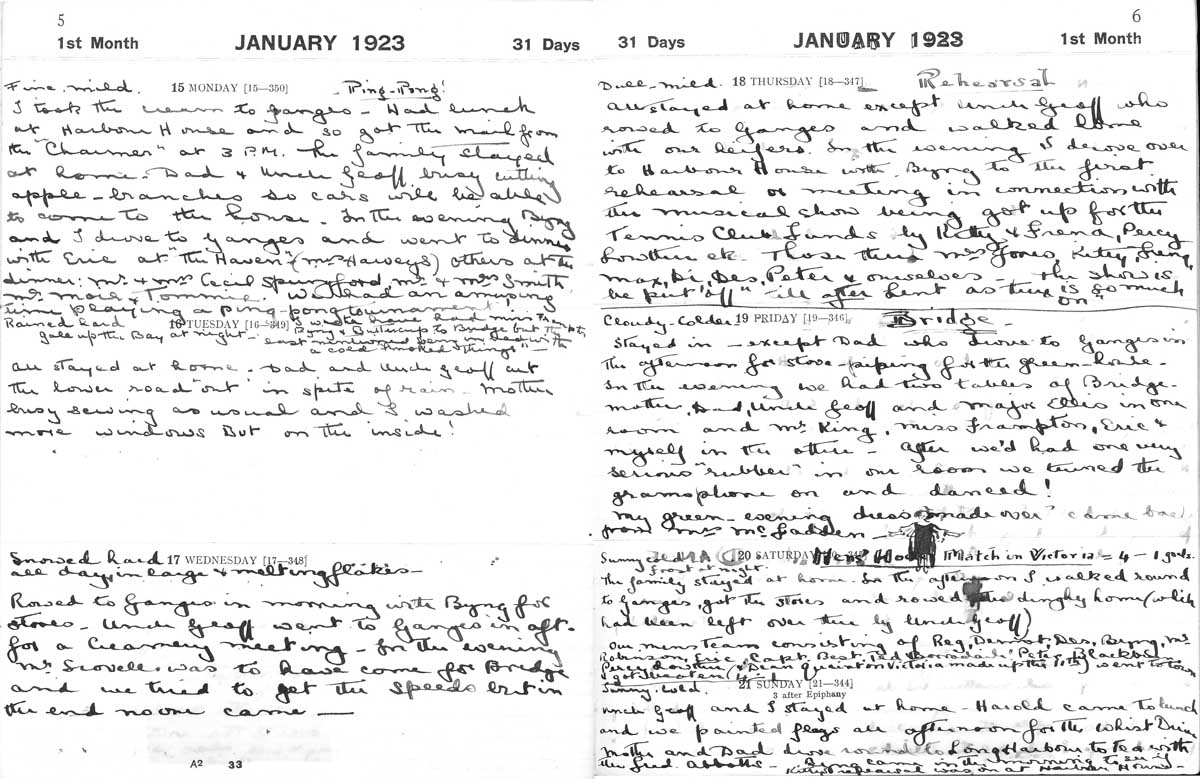 5
1st Month JANUARY 1923 31 Days
Fine. mild. 15 MONDAY [15—350] Ping-Pong!
I took the cream to Ganges - Had lunch
at Harbour House and so got the mail from
the "Charmer" at 3 P.M. The family stayed
at home. Dad & Uncle Geoff busy cutting
apple-branches so cars will be able
to come to the house. In the evening Byng
and I drove to Ganges and went to dinner
with Eric at "the Haven" (Mrs Harveys) others at the
dinner: Mr & Mrs Cecil Springford, Mr & Mrs Smith
Mr. & Tommie. We had an amusing
time playing a ping-pong tournament
Rained hard 16 TUESDAY [16—349]
gale up the Bay at night -
& Buttercup to Bridge but the
last mentioned being in bed with
a cold smoked things" -
All stayed at home. Dad and Uncle Geoff cut
the lower road "out" in spite of rain. Mother
busy sewing as usual and I washed
more windows But on the inside!
Snowed hard 17 WEDNESDAY [17—348]
all day, in large & melting flakes -
Rowed to Ganges in morning with Byng for
stores. Uncle Geoff went to Ganges in aft.
for a Creamery meeting - for the evening
Mr. Scovell was to have come for Bridge
and we tried to get the Speeds but in
the end no one came —
A2 33
6
31 Days JANUARY 1923 1st Month
Dull-mild. 18 THURSDAY [18—347] Rehearsal
All stayed at home except Uncle Geoff who
rowed to Ganges and walked home
with our heifers. In the evening I drove over
to Harbour House with Byng to the first
rehearsal or meeting in connection with
the musical show being got up for the
Tennis Club Funds by Kitty & Frena, Percy
Lowther etc. Those there Mrs Jones, Kitty, Frena,
Max, Di, Des, Peter & ourselves - the show is
be put "off" till after Lent as there is so much
"on"
Cloudy-Colder 19 FRIDAY [19—346] Bridge -
Stayed in - except Dad who drove to Ganges in
the afternoon for stove-piping for the green-house.
In the evening we had two tables of Bridge-
Mother, Dad, Uncle Geoff and Major Ellis in one
room and Mr King, Miss Frampton, Eric &
myself in the other - After we'd had one very
serious "rubber" in our room we turned the
gramophone on and danced!
My green-evening dress "made over" came back
from Mrs McFadden -
Sunny 20 SATURDAY Match in Victoria = 4 - 1 goals.
Frost at night.
The family stayed at home. In the afternoon I walked round
to Ganges, got the stores and rowed the dinghy home (which
had been left over there by Uncle Geoff)
Our mens team consisting of Reg, Dermot, Des, Byng, Mr
Robinson, Eric, Capt. Best, Peter Blackburn
Percy Lowther Brian in Victoria made up the 11th) went to town
& got beaten 4 - 1
Sunny. Cold. 21 SUNDAY [21—344]
3 after Epiphany
Uncle Geoff and I stayed at home - Harold came to lunch
and we painted flags all afternoon for the Whist Drive
Mother and Dad drove to Long Harbour to tea with
the Fred. Abbotts - Byng came in the morning
Kitty's rehearsal was on at Harbour House -